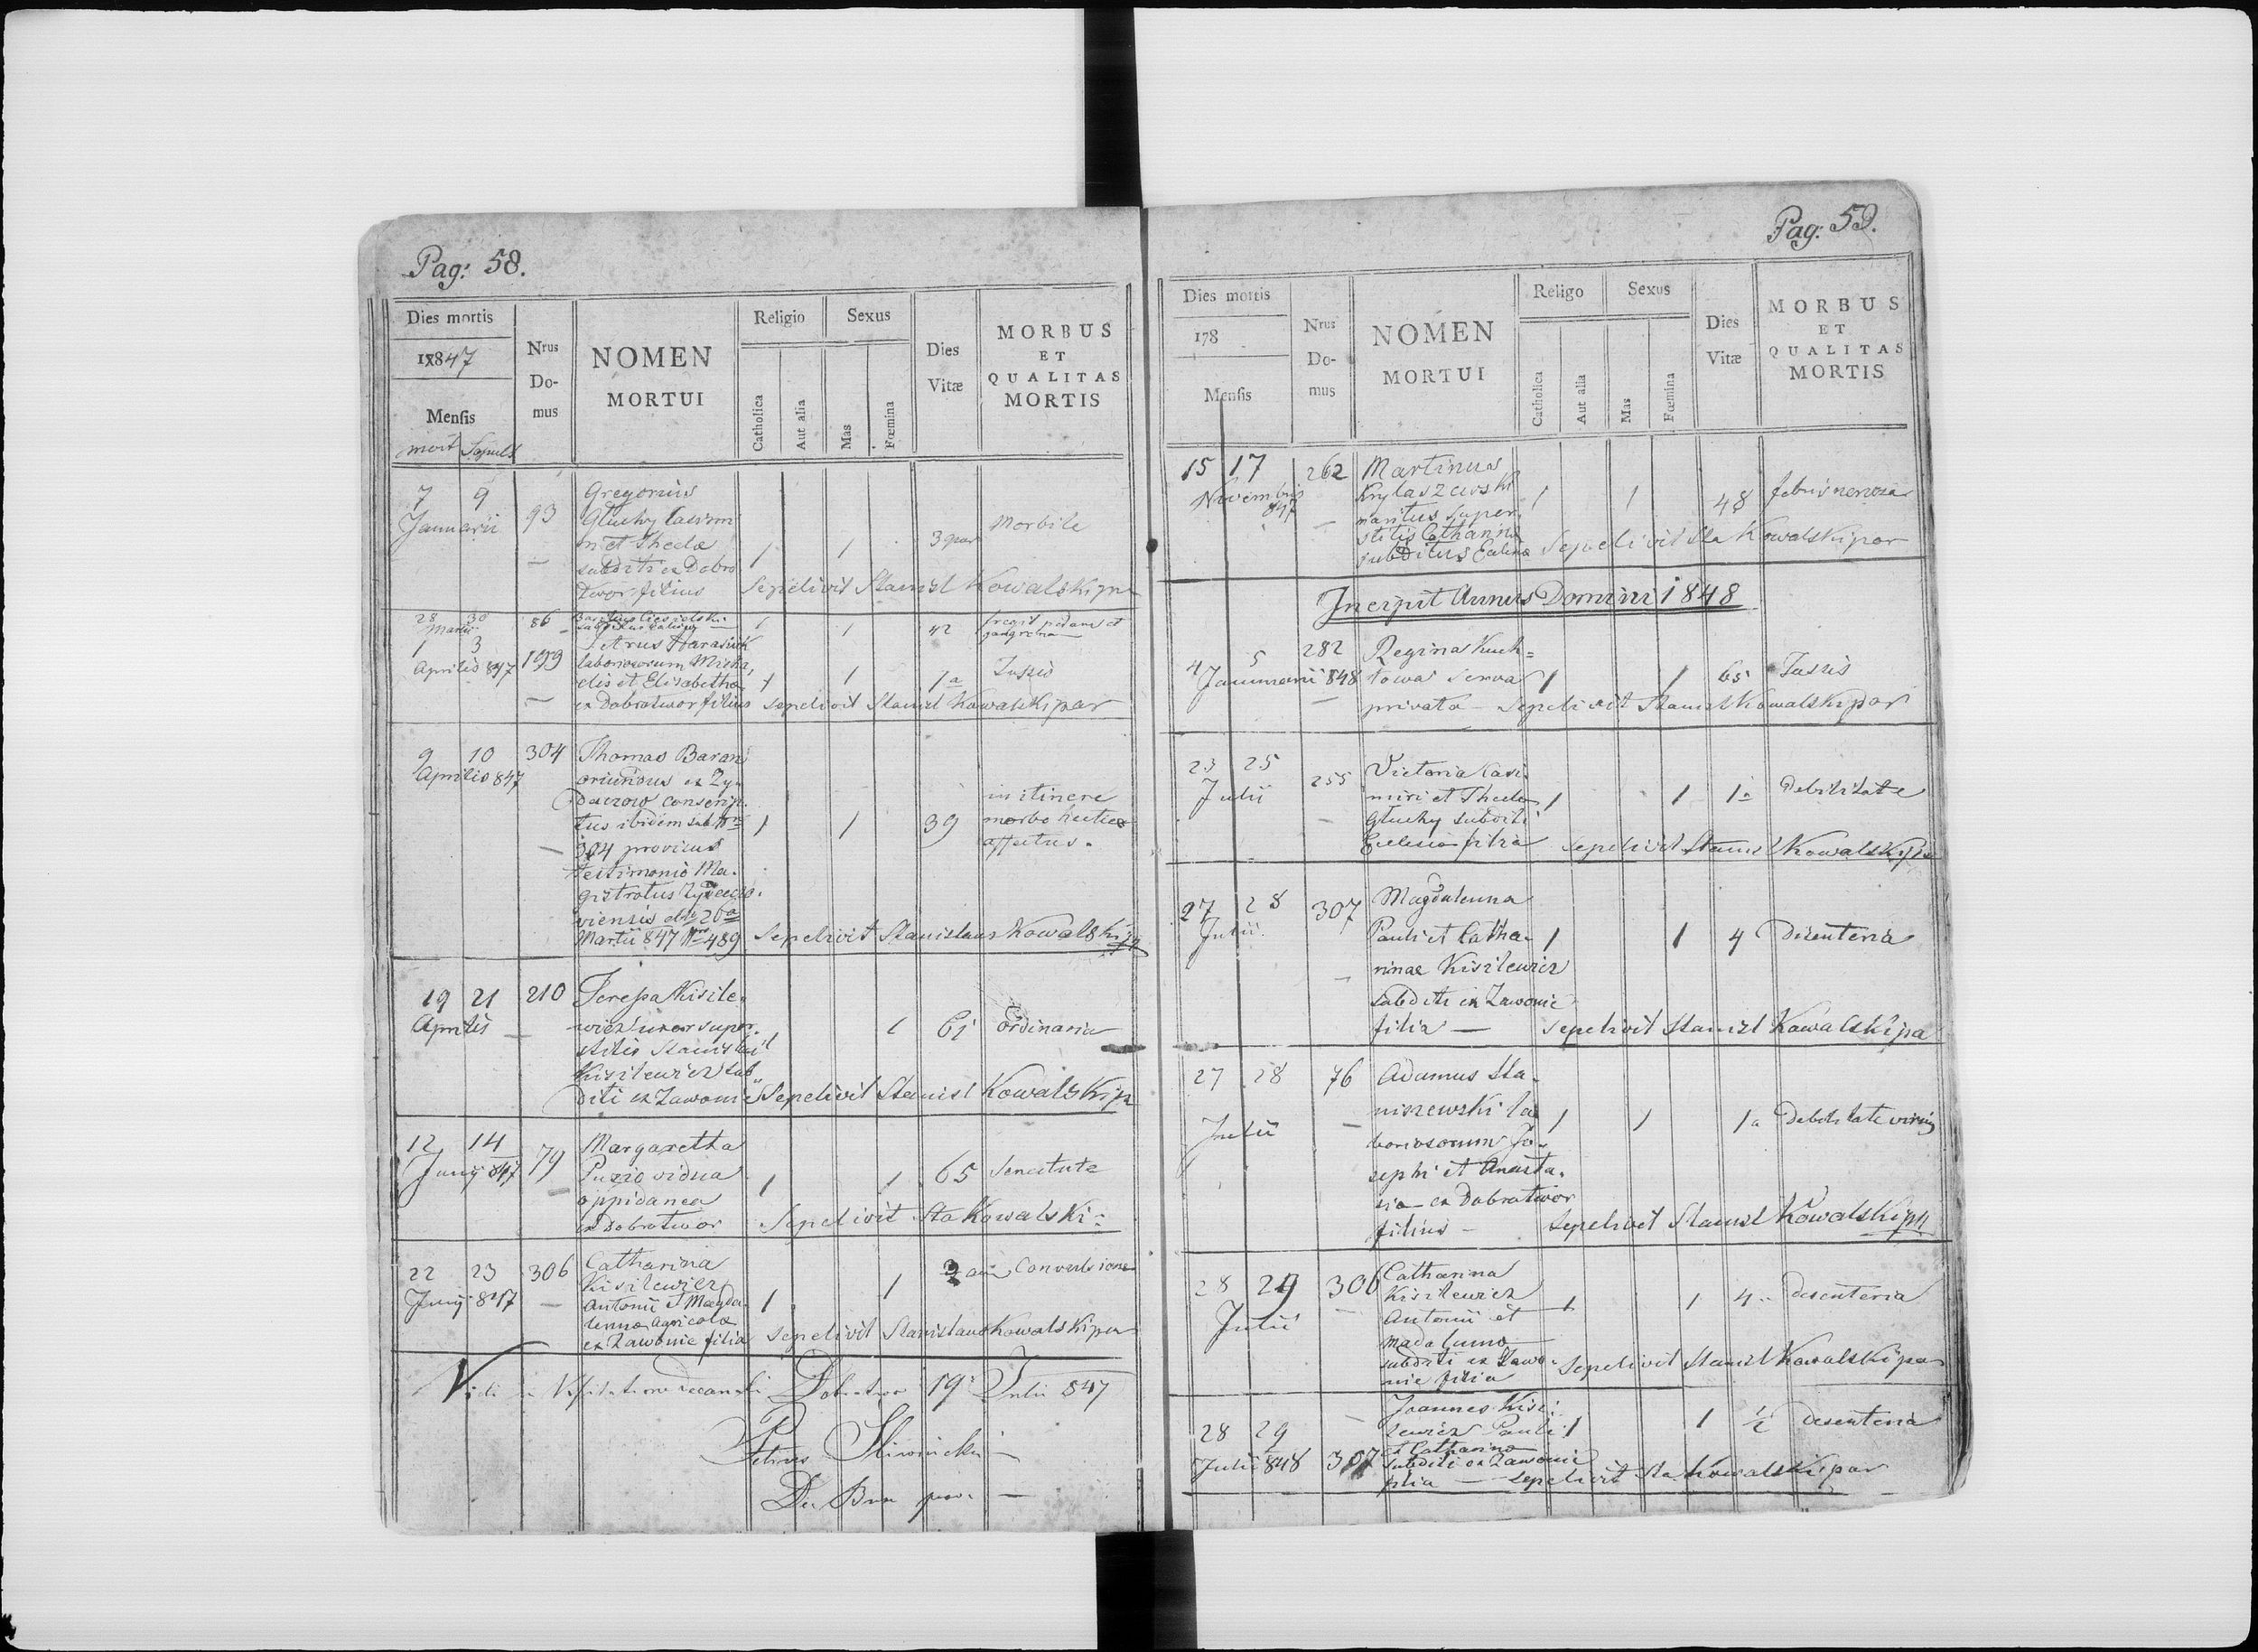 Pag: 58.
Dies mortis
1847
Mensis
mort Sepult
Nrus
Do-
mus
NOMEN
MORTUI
Religio
Catholica
Aut alia
Sexus
Mas
Fœmina
Dies
Vitæ
MORBUS
ET
QUALITAS
MORTIS
7 9 93 Gregorius
Januarii Gluchy Casim
et Theclæ 1 1 3 Morbile
subditi ex Dobro
twor filius Sepelivit Stanisl Kowalski
28 30 86 1 1 42 fregit pedem et
Martii gangrena
1 3 199 Petrus Harasiuk
Aprilis 847 laboriosorum Micha,
elis et Elisabethæ 1 1 1a Tussis
ex Dobratwor filius Sepelivit Stanisl Kowalski par
9 10 304 Thomas Baran
Aprilis 847 oriundus ex Zy-
daczow conscrip-
tus ibidem sub Nro 1 1 39 in itinere
304 provisus morbo hectica
testimonio Ma- affectus.
gistratus Zydaczo-
viensis ddo 26a
Martii 847 Nro 489 Sepelivit Stanislaus Kowalski
19 21 210 Teressa Kisile-
Aprilis wicz uxor super- 1 1 61 ordinaria
stitis Stanislai
Kisilewicz sub
diti ex Zawonie Sepelivit Stanisl Kowalski
12 14 79 Margaretha
Junij 847 Puzio vidua 1 1 65 Senectute
oppidanea
ex Dobratwor Sepelivit Sta Kowalski
22 23 306 Catharina
Junij 847 Kisilewicz 1 1 Convulsione
Antonii et Magda-
lenna agricolæ
ex Zawonie filia Sepelivit Stanislaus Kowalski par
Vidi in Visitatione decanali Dobratwor 19 Julii 847
Petrus
Pag: 59.
Dies mortis
178
Mensis
Nrus
Do-
mus
NOMEN
MORTUI
Religo
Catholica
Aut alia
Sexus
Mas
Fœmina
Dies
Vitæ
MORBUS
ET
QUALITAS
MORTIS
15 17 262 Martinus
Novembris 847 Krylaszewski 1 1 48 febris nervosa
maritus super-
stitis Catharina
subditus Sepelivit Sta Kowalski par
Incipit Annus Domini 1848
4 5 282 Regina Kuch=
Januarii 848 towa serva 1 1 65 Tussis
privata - Sepelivit Stanisl Kowalski par
23 25 255 Victoria Casi-
Julii miri et Theclæ 1 1 1a Debilitate
Gluchy subditi
Ecclesia filia Sepelivit Stanisl Kowalski
27 28 307 Magdalenna
Julii Pauli et Catha- 1 1 4 Disenteria
rinae Kisilewicz
subditi ex Zawonie
filia — Sepelivit Stanisl Kowalski pa
27 28 76 Adamus Sta-
Julii niszewski la 1 1 1a Debilitate
boriosorum Jo-
sephi et Anasta-
sia ex Dobratwor
filius - Sepelivit Stanisl Kowalski
28 29 306 Catharina
Julii Kisilewicz 1 1 4 desenteria
Antonii et
Madalenna
subditi ex Zawo-
nie filia Sepelivit Stanisl Kowalski par
28 29 Joannes Kisi-
Julii 848 307 lewicz Pauli 1 1 1/2 desenteria
et Catharina
subditi ex Zawonie
filia — Sepelivit Sta Kowalski par